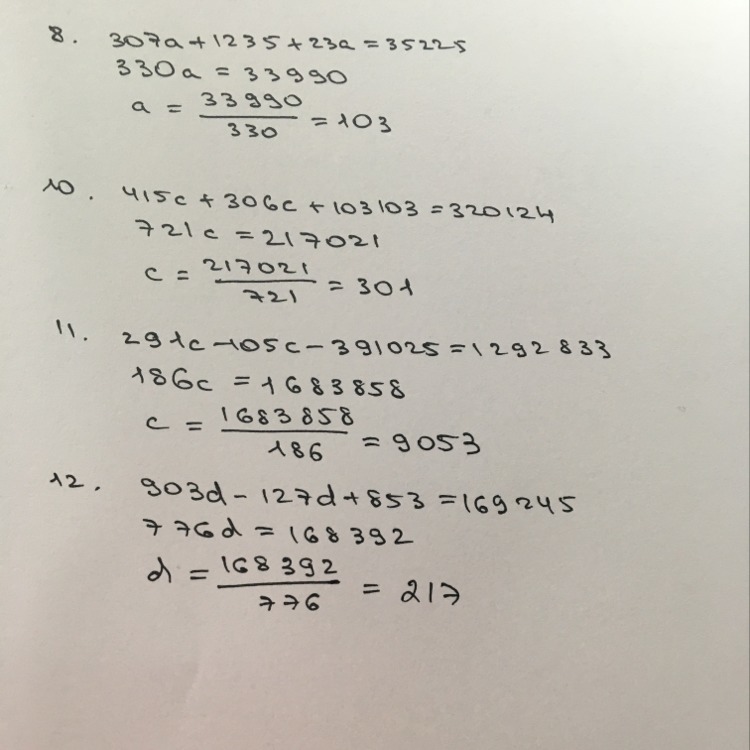 8. 307a+1235+23a=35225
330a = 33990
a = 33990/330 = 103
10. 415c + 306c + 103103 = 320124
721c = 217021
c = 217021/721 = 301
11. 291c-105c-391025=1292833
186c = 1683858
c = 1683858/186 = 9053
12. 903d-127d+853=169245
776d = 168392
d = 168392/776 = 217